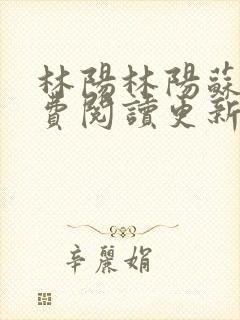 林陽林陽蘇
費閱讀更新
辛麗娟